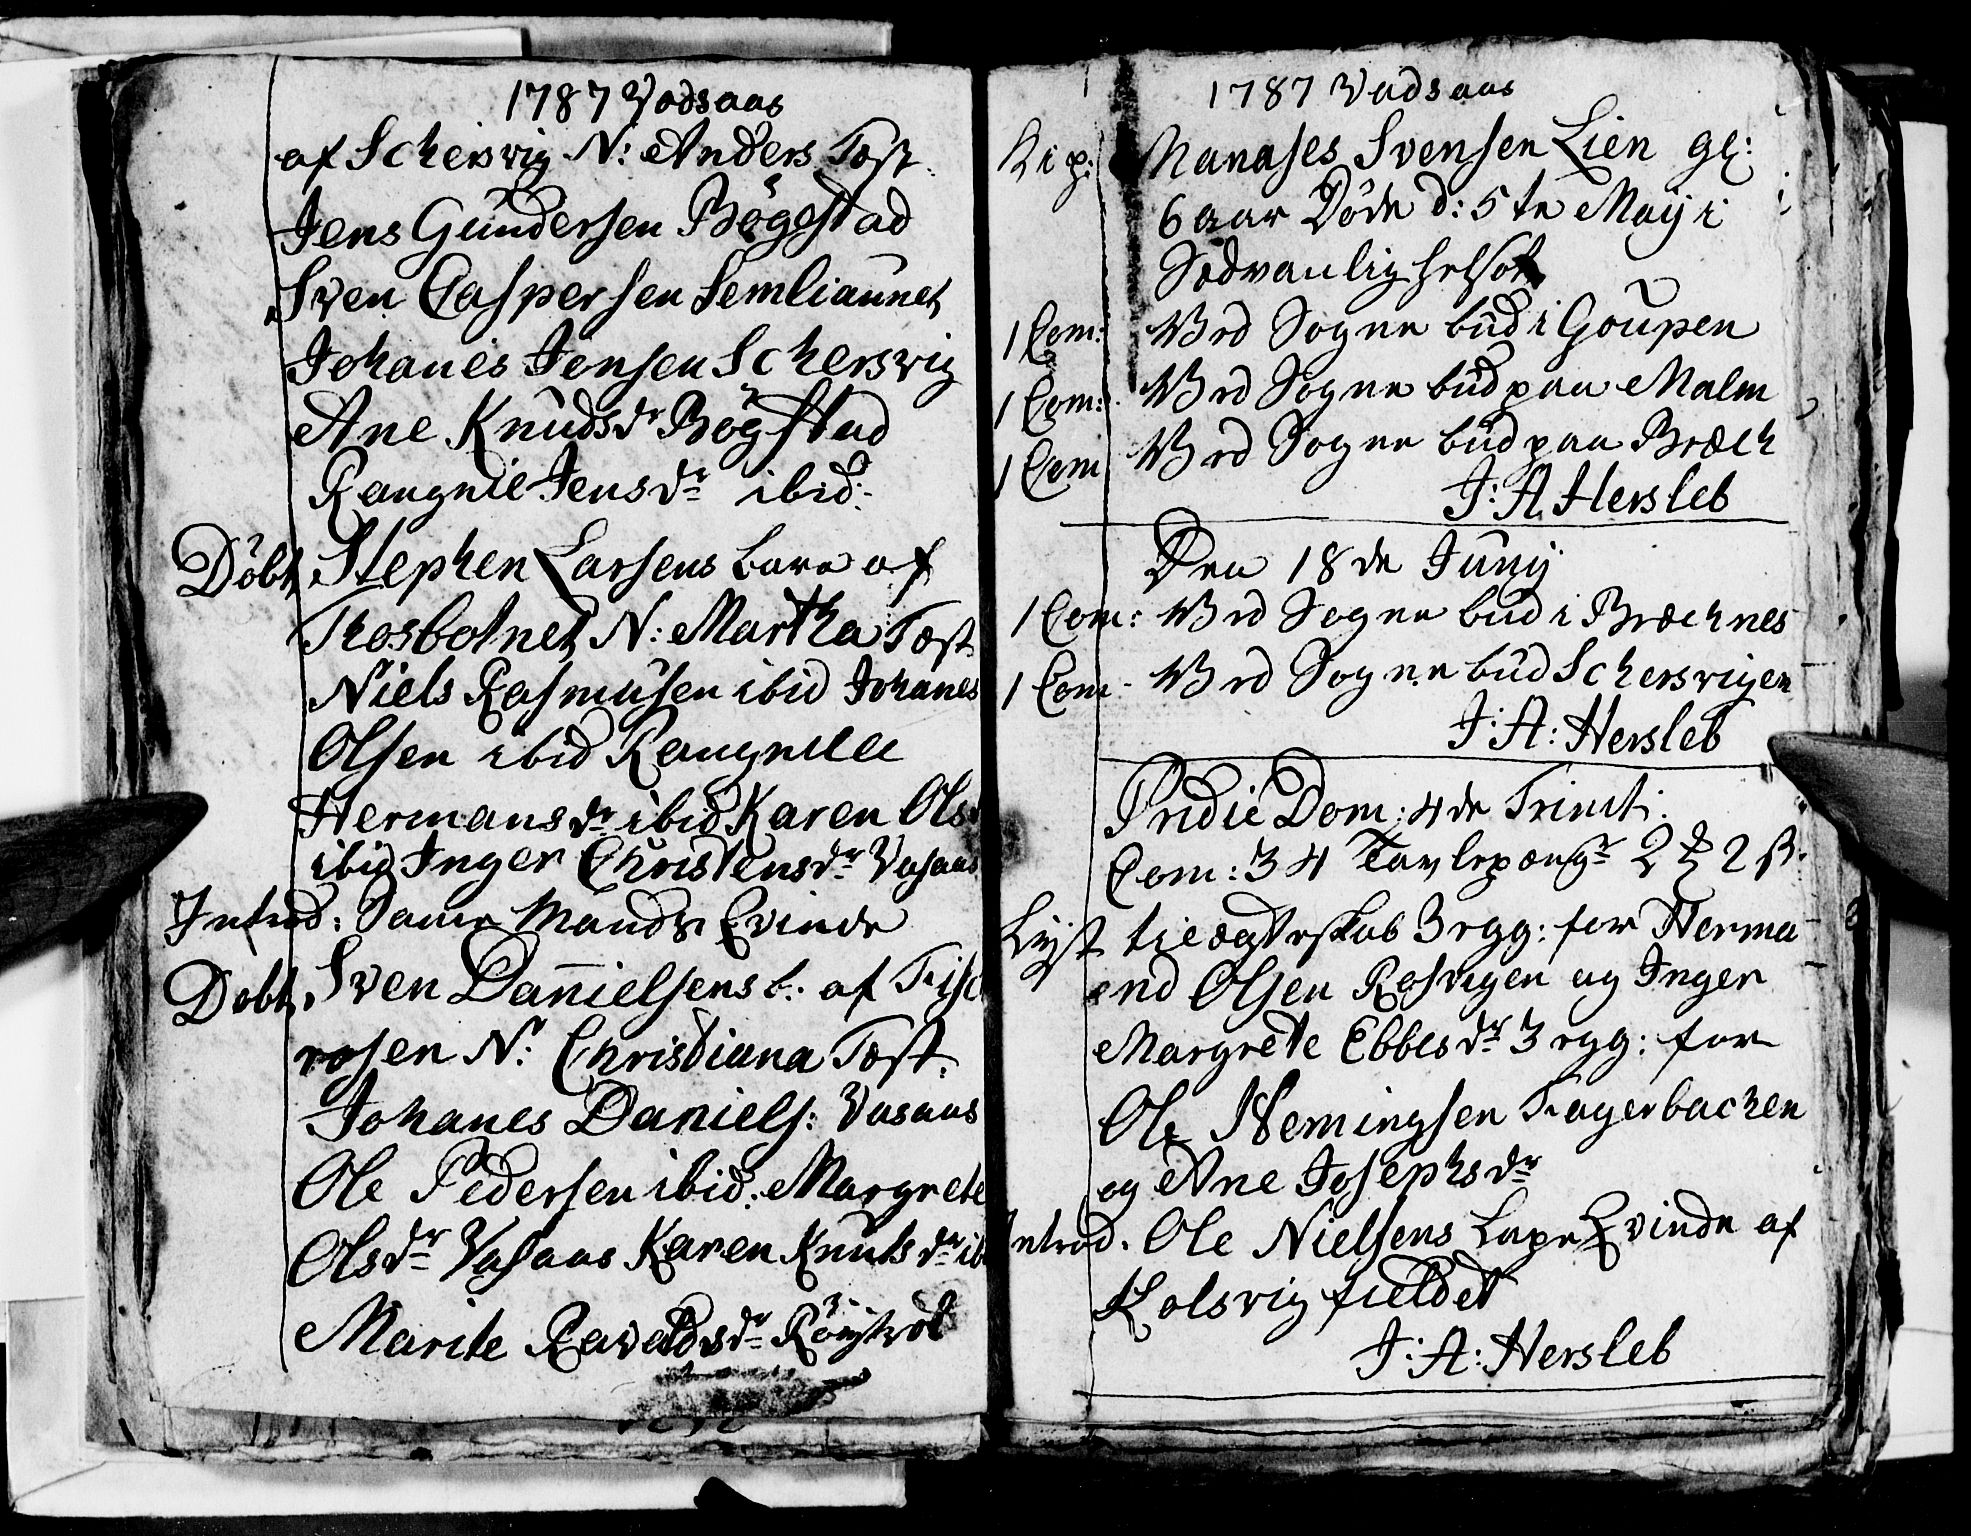 1787 Vadsaas
af Schersvig N: Anders Test.
Jens Gundersen Bøgestad
Sven Caspersen Semliaunet
Johanes Jensen Schersvig
Ane Knudsdr Bøgstad
Rangnie Jensdr ibid:
Döbt Stephen Larsens barn af
Thosbotnet N: Martha Test
Niels Rasmusen ibid Johanes
Olsen ibid Rangnille
Hermansdr ibid Karen Ols
ibid Inger Christensdr Vasaas
Introd: Same Mands Qvinde
Döbt Sven Danielsens b: af
rosen N: Christiana Test.
Johanes Daniels: Vasaas
Ole Pedersen ibid: Margrete
Olsdr Vasaas Karen Knutsdr ib
Marite
1787 Vadsaas
Manases Svensen Lien gl:
6 aar Døde d: 5te Maij i
Sædvanlig helsot
1 Com: Ved Sogne bud i Goupen
1 Com: Ved Sogne bud paa Malm
1 Com Ved Sogne bud paa Bræch
J: A Hersleb
Den 18de Junij
1 Com: Ved Sogne bud i Bræchnes
1 Com Ved Sogne bud Schersvigen
J: A: Hersleb
Pridie Dom: 4de Trinit:
Com: 34 Tavlepenge 2 2 ß.
Lyst til ægteskab 3 rgg: for Herma
end Olsen Rosvigen og Inger
Margrete Ebbesdr 3 rgg: for
Ole Hemingsen Fagerbachen
og Ane Josephsdr
Introd. Ole Nielsens Lape Qvinde af
Kolsvig fieldet
J: A: Hersleb